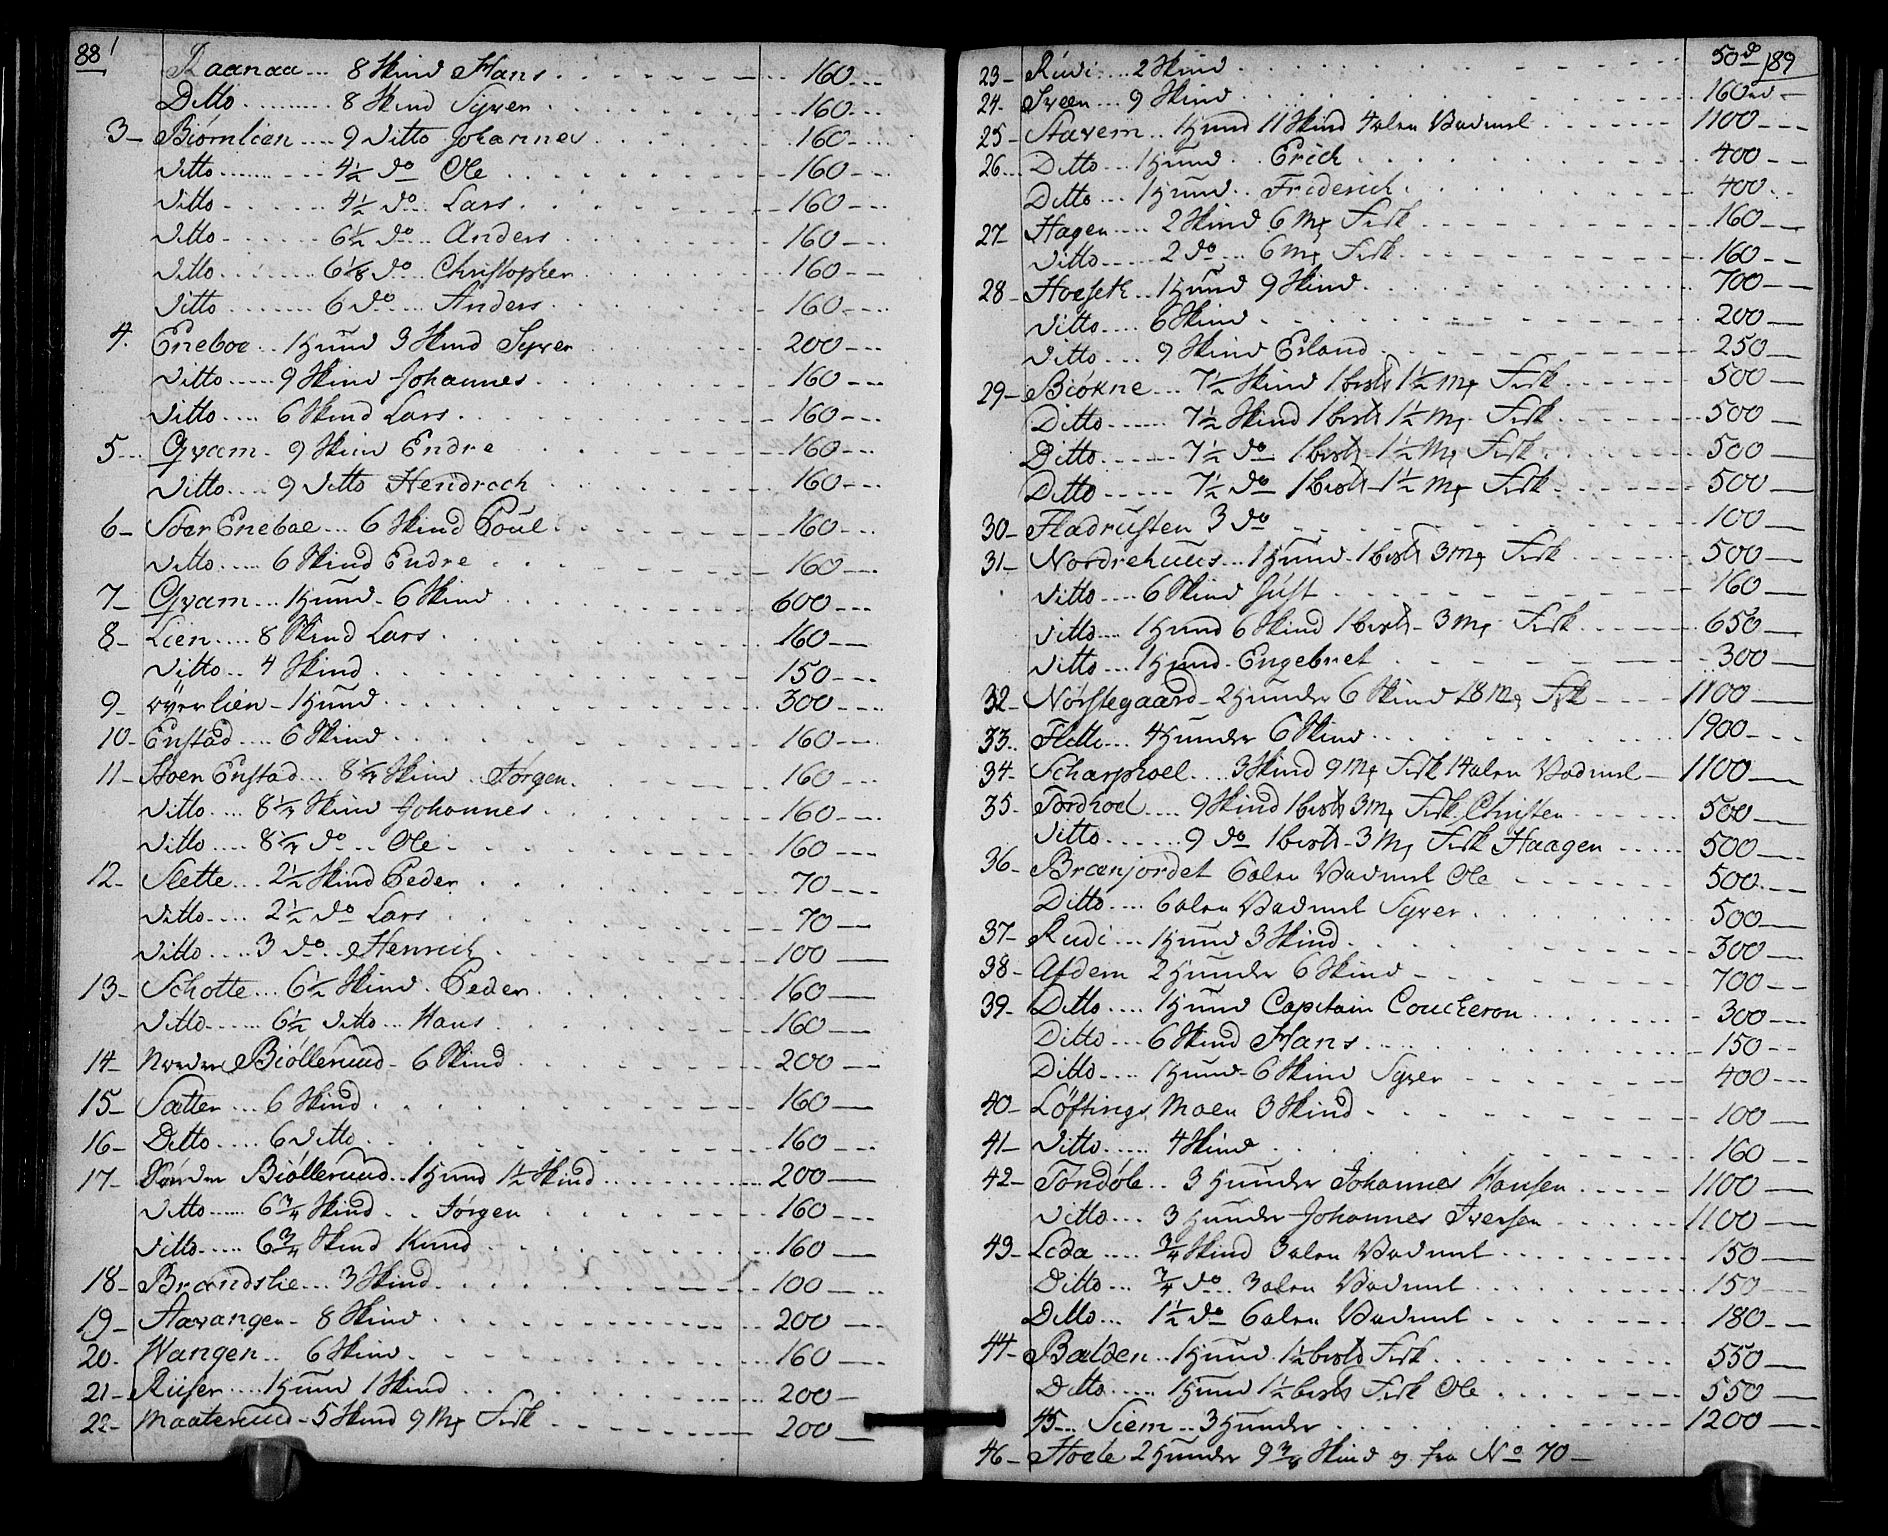 88
Raanaa... 8 Skind Hans 160
Ditto 8 Skind Syver 160
3 Biørnlien 9 Ditto Johannes 160
Ditto 4½ do Ole 160
Ditto 4½ do Lars 160
Ditto 6½ do Anders 160
Ditto 6⅛ do Christopher 160
Ditto 6 do Anders 160
4. Eneboe 1 Hund 3 Skind Syver 200
Ditto 9 Skind Johannes 160
Ditto 6 Skind Lars 160
5 Qvam 9 Skind Endre 160
Ditto 9 Ditto Hendrech 160
6 Stor Eneboe 6 Skind Poul 160
Ditto 6 Skind Endre 160
7 Qvam 1 Hund 6 Skind 600
8 Lien 8 Skind Lars 160
Ditto 4 Skind 150
9 Øverlien 1 Hund 300
10 Enstad 6 Skind 160
11 Stoer Enstad 8¼ Skind Jørgen 160
Ditto 8¼ Skind Johannes 160
Ditto 8¼ do Ole 160
12 Slette 2½ Skind Peder 70
Ditto 2½ do Lars 70
Ditto 3 do Henrich 100
13 Schotte 6½ Skind Peder 160
Ditto 6½ Ditto Hans 160
14 Nordre Biøllerud 6 Skind 200
15 Sætter 6 Skind 160
16 Ditto 6 Ditto 160
17 Biøllerud 1 Hund 1½ Skind 200
Ditto 6¾ Skind Jørgen 160
Ditto 6¾ Skind Knud 160
18 Brandslie 3 Skind 100
19 Aavangen 8 Skind 200
20 Wangen 6 Skind 160
21 Riiser 1 Hund 1 Skind 200
22 Maaterud 5 Skind 9 Mk Fisk 200
89
23 Rudi 2 Skind 50 d
24 Sveen 9 Skind 160
25 Stavem 1 Hund 11 Skind 4 alen Vadmel 1100
26 Ditto 1 Hund Erich 400
Ditto 1 Hund Friderich 400
27 Hagen 2 Skind 6 Mk Fisk 160
Ditto 2 do 6 Mk Fisk 160
28 Hoeseth 1 Hund 9 Skind 700
Ditto 6 Skind 200
Ditto 9 Skind Erland 250
29 Biøkne 7½ Skind 1 1½ Mk Fisk 500
Ditto 7½ Skind 1 1½ Mk Fisk 500
Ditto 7½ do 1 1½ Mk Fisk 500
Ditto 7½ do 1 1½ Mk Fisk 500
30 Fladrusten 3 do 100
31 Nordrehuus 1 Hund 1 3 Mk Fisk 500
Ditto 6 Skind Just 160
Ditto 1 Hund 6 Skind 1 3 Mk Fisk 650
Ditto 1 Hund Engebret 300
32 Nørstegaard 2 Hunder 6 Skind 18 Mk Fisk 1100
33 Flette 4 Hunder 6 Skind 1900
34 Scharphoel 3 Skind 9 Mk Fisk 14 alen Vadmel 1100
35 Tordhoel 9 Skind 1 3 Mk Fisk Christen 500
Ditto 9 do 1 3 Mk Fisk Haagen 500
36 Brænjordet 6 alen Vadmel Ole 500
Ditto 6 alen Vadmel Syver 500
37 Rudi 1 Hund 3 Skind 300
38 Afdem 2 Hunder 6 Skind 700
39 Ditto 1 Hund Capitain Coucheron 300
Ditto 6 Skind Hans 150
Ditto 1 Hund 6 Skind Syver 400
40 Løftings Moen 3 Skind 100
41 Ditto 4 Skind 160
42 Tøndøl 3 Hunder Johannes Hansen 1100
Ditto 3 Hunder Johannes Iversen 1100
43 Leda ¾ Skind 3 alen Vadmel 150
Ditto ¾ do 3 alen Vadmel 150
Ditto 1½ do 6 alen Vadmel 180
44 Balden 1 Hund 1½ Fisk 550
Ditto 1 Hund 1½ Fisk Ole 550
45 Siem 3 Hunder 1200
46 Hoele 2 Hunder 9⅜ Skind og fra No 70